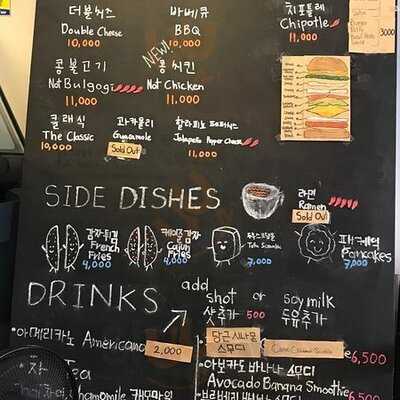 더블치즈 바베큐 치포틀레
Double Cheese BBQ Chipotle
10,000 10,000 11,000
3000
콩불고기 NEW! 콩치킨
Not Bulgogi Not Chicken
11,000 11,000
클래식 과카몰리 할라피뇨
The Classic Guacamole Jalapeño Pepper Cheese
10,000 Sold Out 11,000
SIDE DISHES
라면
Ramen
Sold Out
감자튀김 케이준감자 팬케익
French Fries Cajun Fries Tofu Pancakes
4,000 4,000 7,000 7,000
DRINKS
add
shot or soymilk
샷추가 500 두유추가
아메리카노 Americano 2,000
당근 시나몬
스무디
6,500
차 Tea
아보카도 바나나 스무디
Avocado Banana Smoothie
6,500
Chamomile 캐모마일